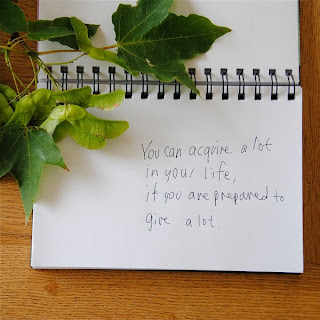 You can acquire a lot
in your life,
if you are prepared to
give a lot.